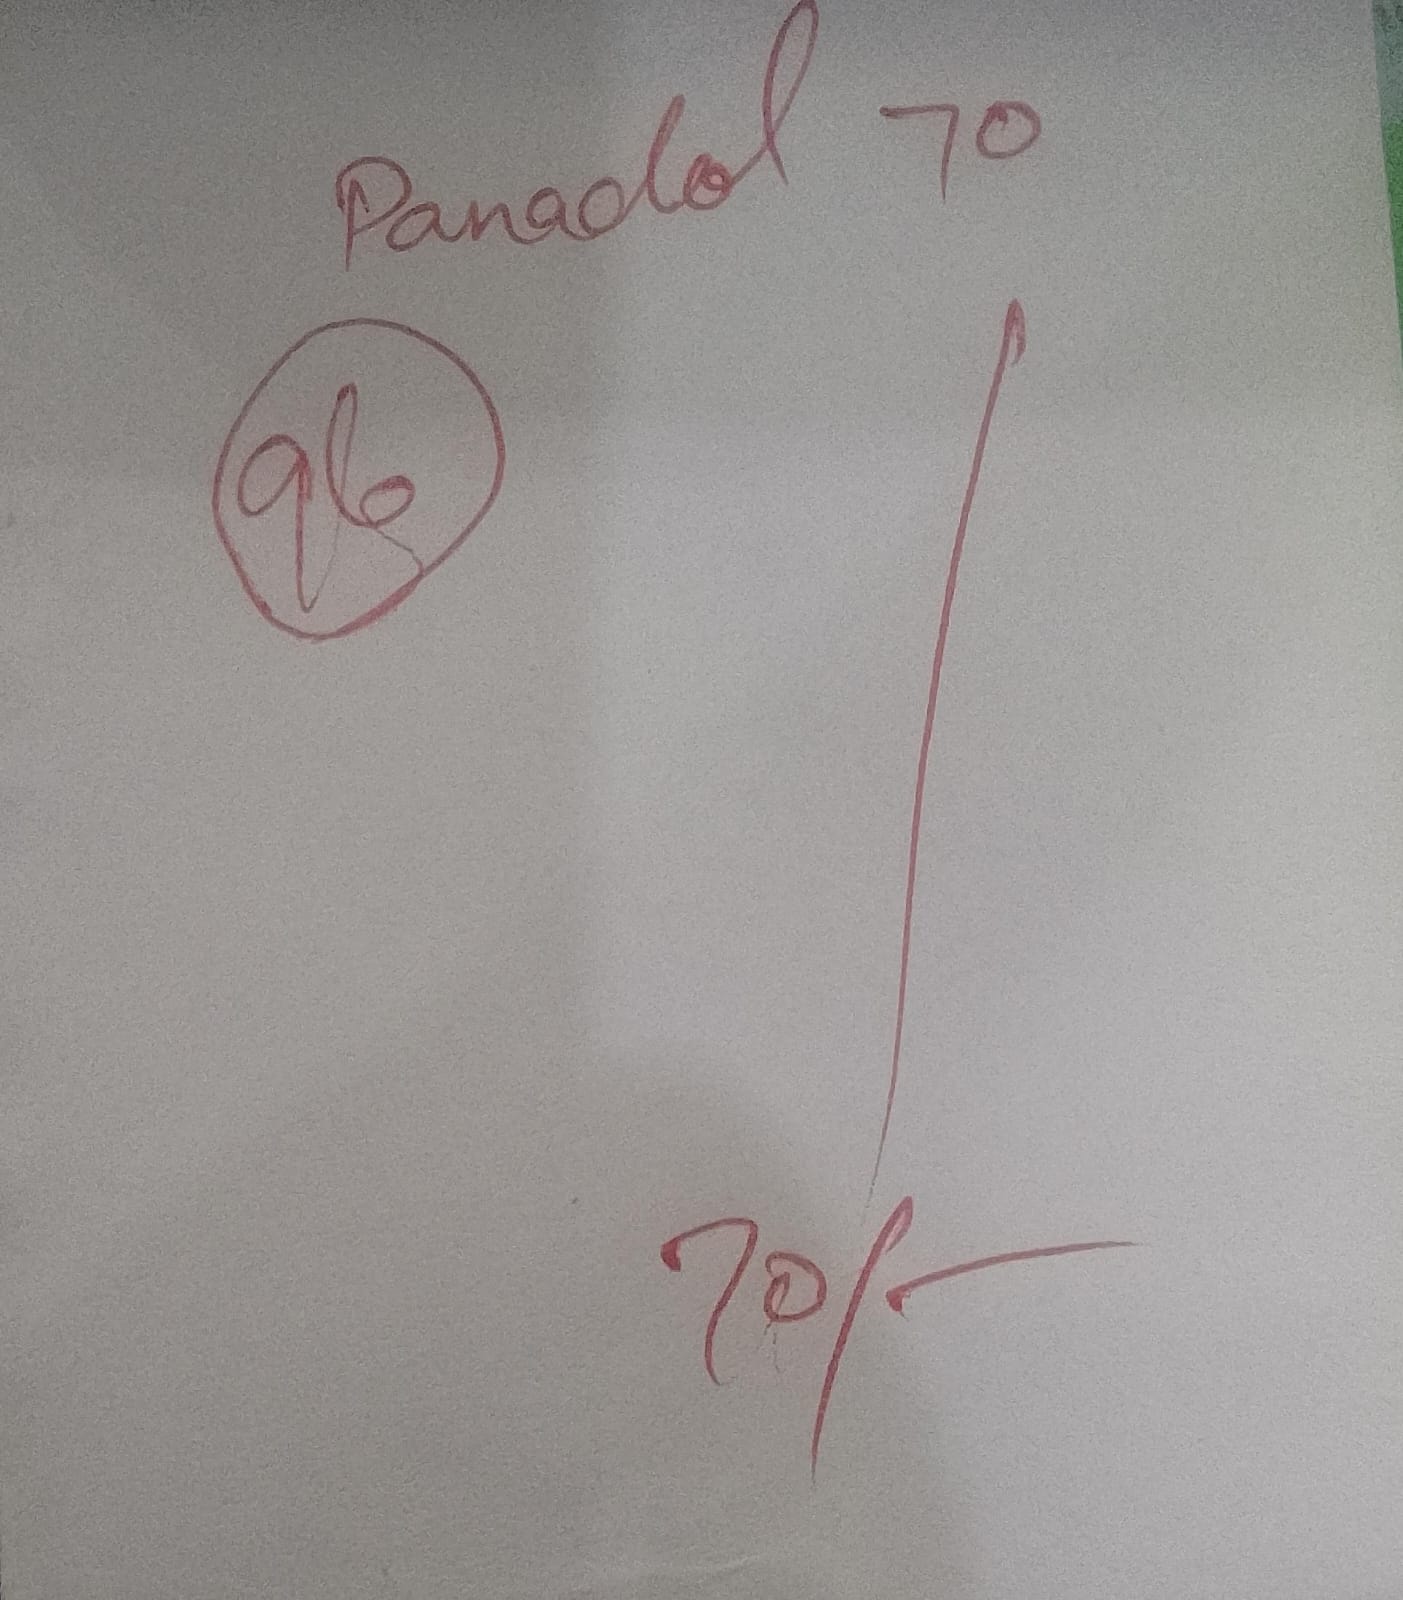 Panadol 70
96
70/-